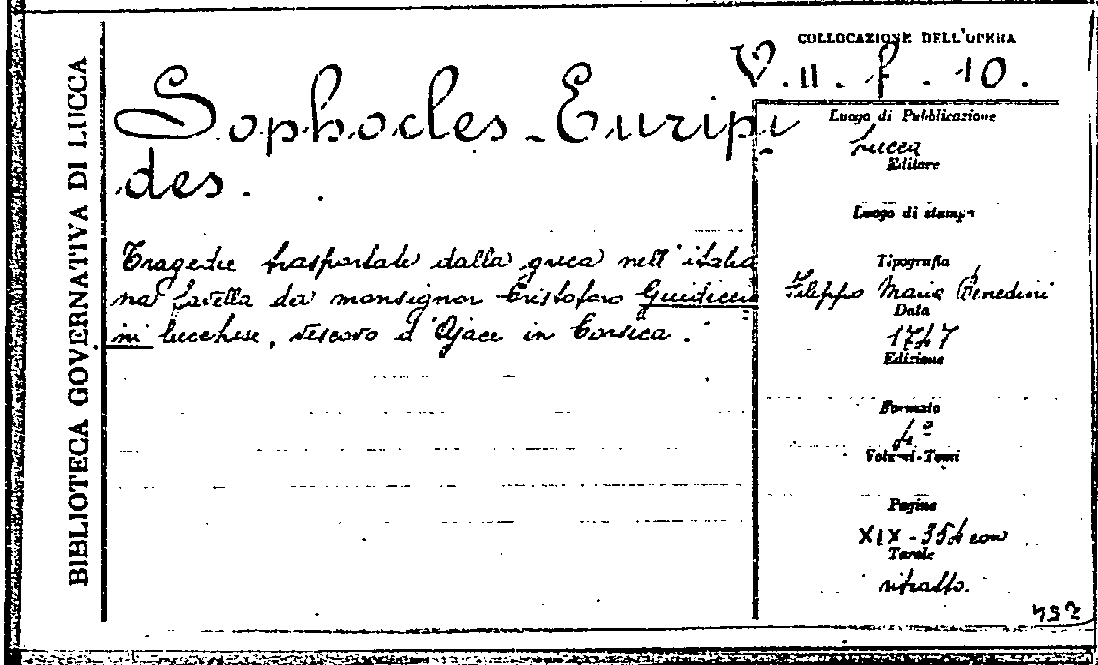 BIBLIOTECA GOVERNATIVA DI LUCCA
Sophocles - Euripi
des.
Tragedie trasportate dalla greca nell'italia
na favella da monsignor Cristoforo Guidicci
ni lucchese, vescovo d'Ajace in Corsica.
COLLOCAZIONE DELL'OPERA
V. II. f. 10.
Luogo di Pubblicazione
Lucca
Editore
Luogo di stampa
Tipografia
Filippo Maria Benedini
Data
1747
Edizione
Formato
4º
Volumi-Tomi
Pagine
XIX - 354 con
Tavole
ritratto.